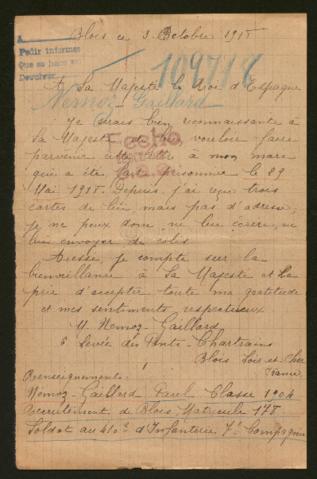 Blois ce 3 Octobre 1918
A
Pedir informes
Que se hace
Devolver
109718
A Sa Majesté le Roi d'Espagne
Nemoz-Gaillard
Je serais bien reconnaissante à
Sa Majesté de vouloir faire
parvenir cette lettre à mon mari
qui a été fait prisonnier le 29
Mai 1918. Depuis, j'ai reçu trois
cartes de lui mais pas d'adresse,
je ne peux donc ne lui écrire, ne
lui envoyer de colis
Aussi, je compte sur la
bienveillance à Sa Majesté et La
prie d'accepter toute ma gratitude
et mes sentiments respectueux
M. Nemoz-Gaillard
6 Levée des Ponts-Chartrains
Blois Loir et Cher
France
Renseignements
Nemoz-Gaillard Paul Classe 1904
Recrutement de Blois Matricule 178
Soldat au 410e d'Infanterie 7e Compagnie